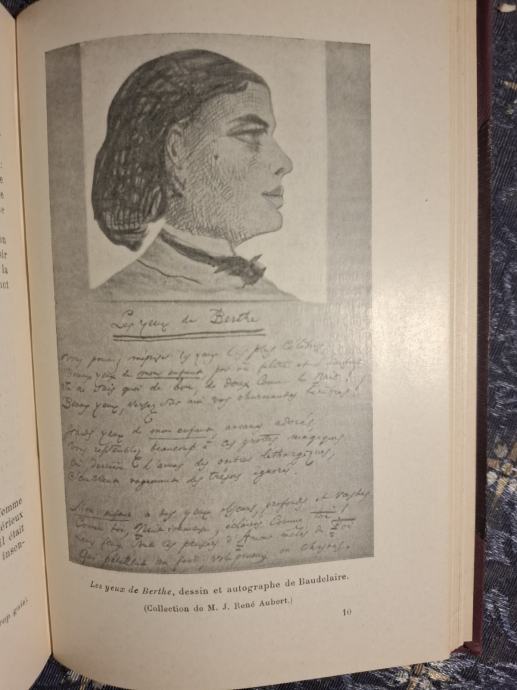 :
e
e
e
in
ir
la
net
Comme
térieux
il était
inson-
rop gaie;
Les yeux de Berthe
Vous pouvez mépriser les yeux les plus célèbres,
Beaux yeux de mon enfant, par où filtre et s'enfuit
Je ne sais quoi de bon, de doux comme la Nuit!
Beaux yeux, versez sur moi vos charmantes ténèbres!
Grands yeux de mon enfant, arcanes adorés,
Vous ressemblez beaucoup à ces grottes magiques
Où derrière l'amas des ombres léthargiques,
Scintillent vaguement des trésors ignorés.
Mon enfant a des yeux obscurs, profonds et vastes
Comme toi, Nuit immense, éclairés comme toi!
Leurs feux sont ces pensers d'Amour, mêlés de Foi,
Qui pétillent au fond, voluptueux ou chastes.
Les yeux de Berthe, dessin et autographe de Baudelaire.
(Collection de M. J. René Aubert.)
10